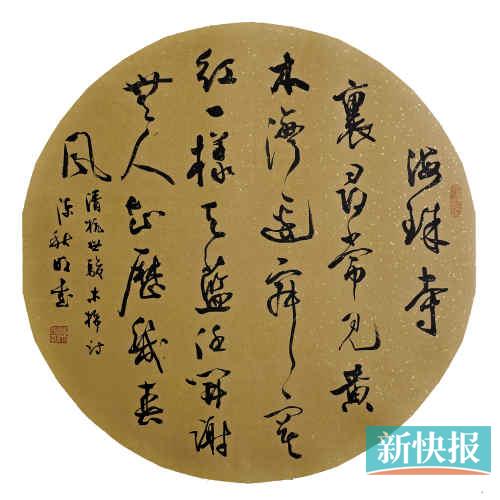 海珠寺
裏尋常見黃
木灣邊寂寞
紅一樣天藍任開謝
無人知歷幾春
風
清杭世駿木棉詩
陳秋明書
新快报